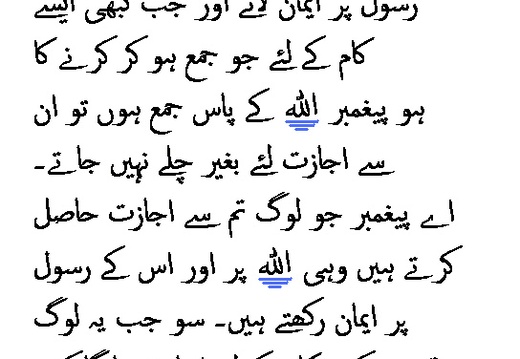 رسول پر ایمان لائے اور جب کبھی ایسے
کام کے لئے جو جمع ہو کر کرنے کا
ہو پیغمبر اللہ کے پاس جمع ہوں تو ان
سے اجازت لئے بغیر چلے نہیں جاتے۔
اے پیغمبر جو لوگ تم سے اجازت حاصل
کرتے ہیں وہی اللہ پر اور اس کے رسول
پر ایمان رکھتے ہیں۔ سو جب یہ لوگ